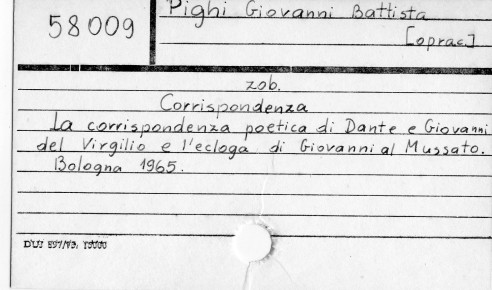 58009
Pighi Giovanni Battista
[oprac.]
zob.
Corrispondenza
La corrispondenza poetica di Dante e Giovanni
del Virgilio e l'ecloga di Giovanni al Mussato.
Bologna 1965.